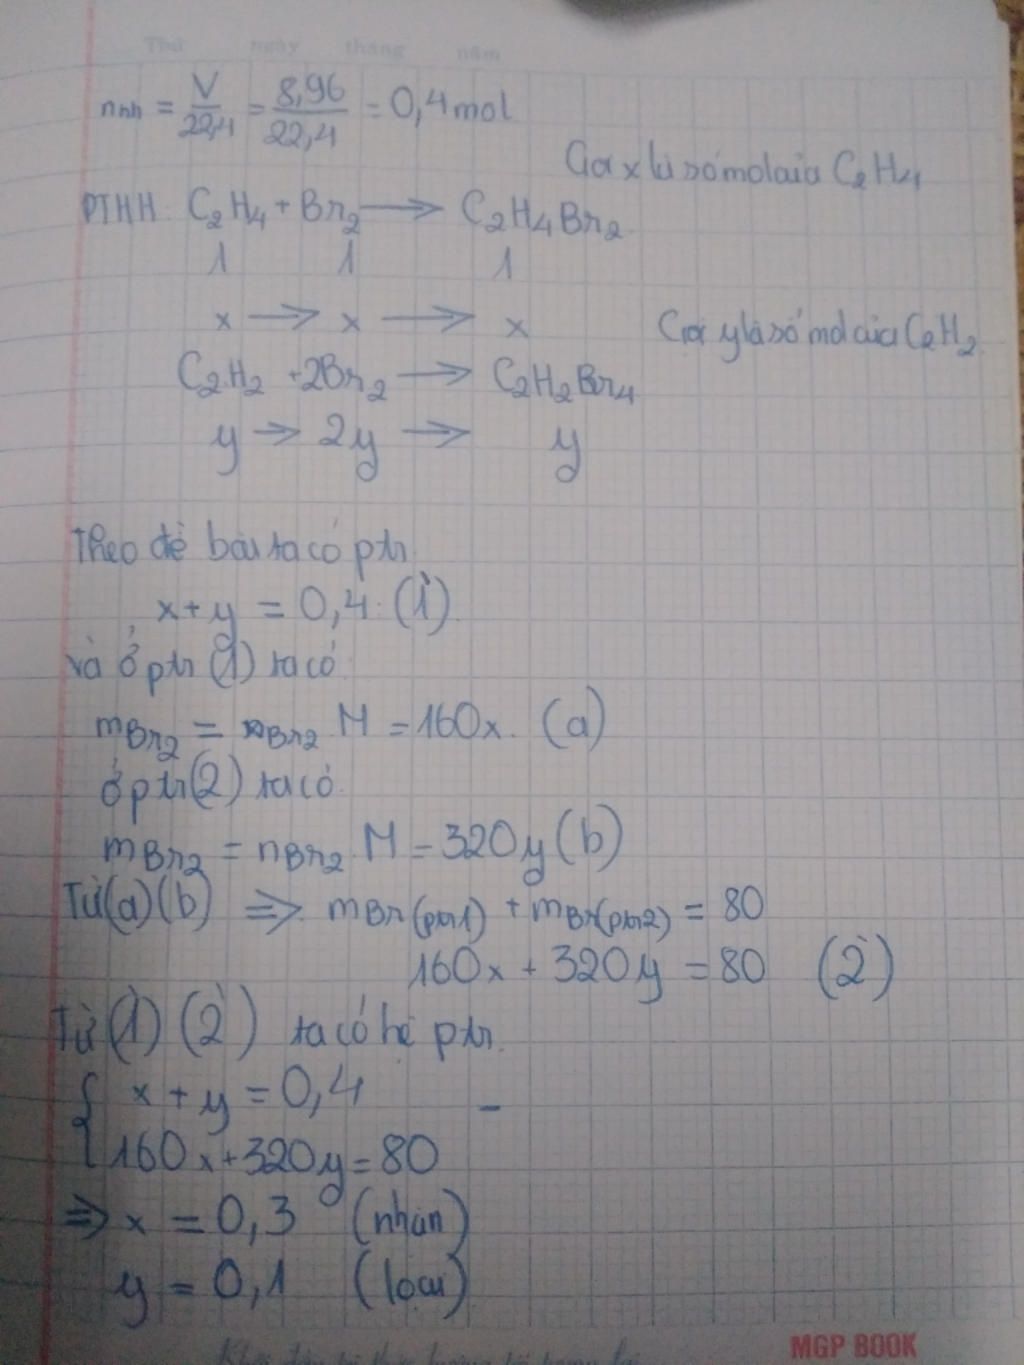 Thứ ngày tháng năm
nhh = V/22,4 = 8,96/22,4 = 0,4 mol
Gọi x là số mol của C₂H₄
PTHH: C₂H₄ + Br₂ → C₂H₄Br₂
1 1 1
x → x → x
Gọi y là số mol của C₂H₂
C₂H₂ + 2Br₂ → C₂H₂Br₄
y → 2y → y
Theo đề bài ta có ptr
x + y = 0,4 (1')
Và ở ptr (1) ta có
mBr₂ = nBr₂ . M = 160x. (a)
ở ptr (2) ta có
mBr₂ = nBr₂ . M = 320y (b)
Từ (a) (b) => mBr(ptr1) + mBr(ptr2) = 80
160x + 320y = 80 (2')
Từ (1') (2') ta có hệ ptr.
{ x + y = 0,4
160x + 320y = 80
=> x = 0,3 (nhận)
y = 0,1 (loại)
MGP BOOK